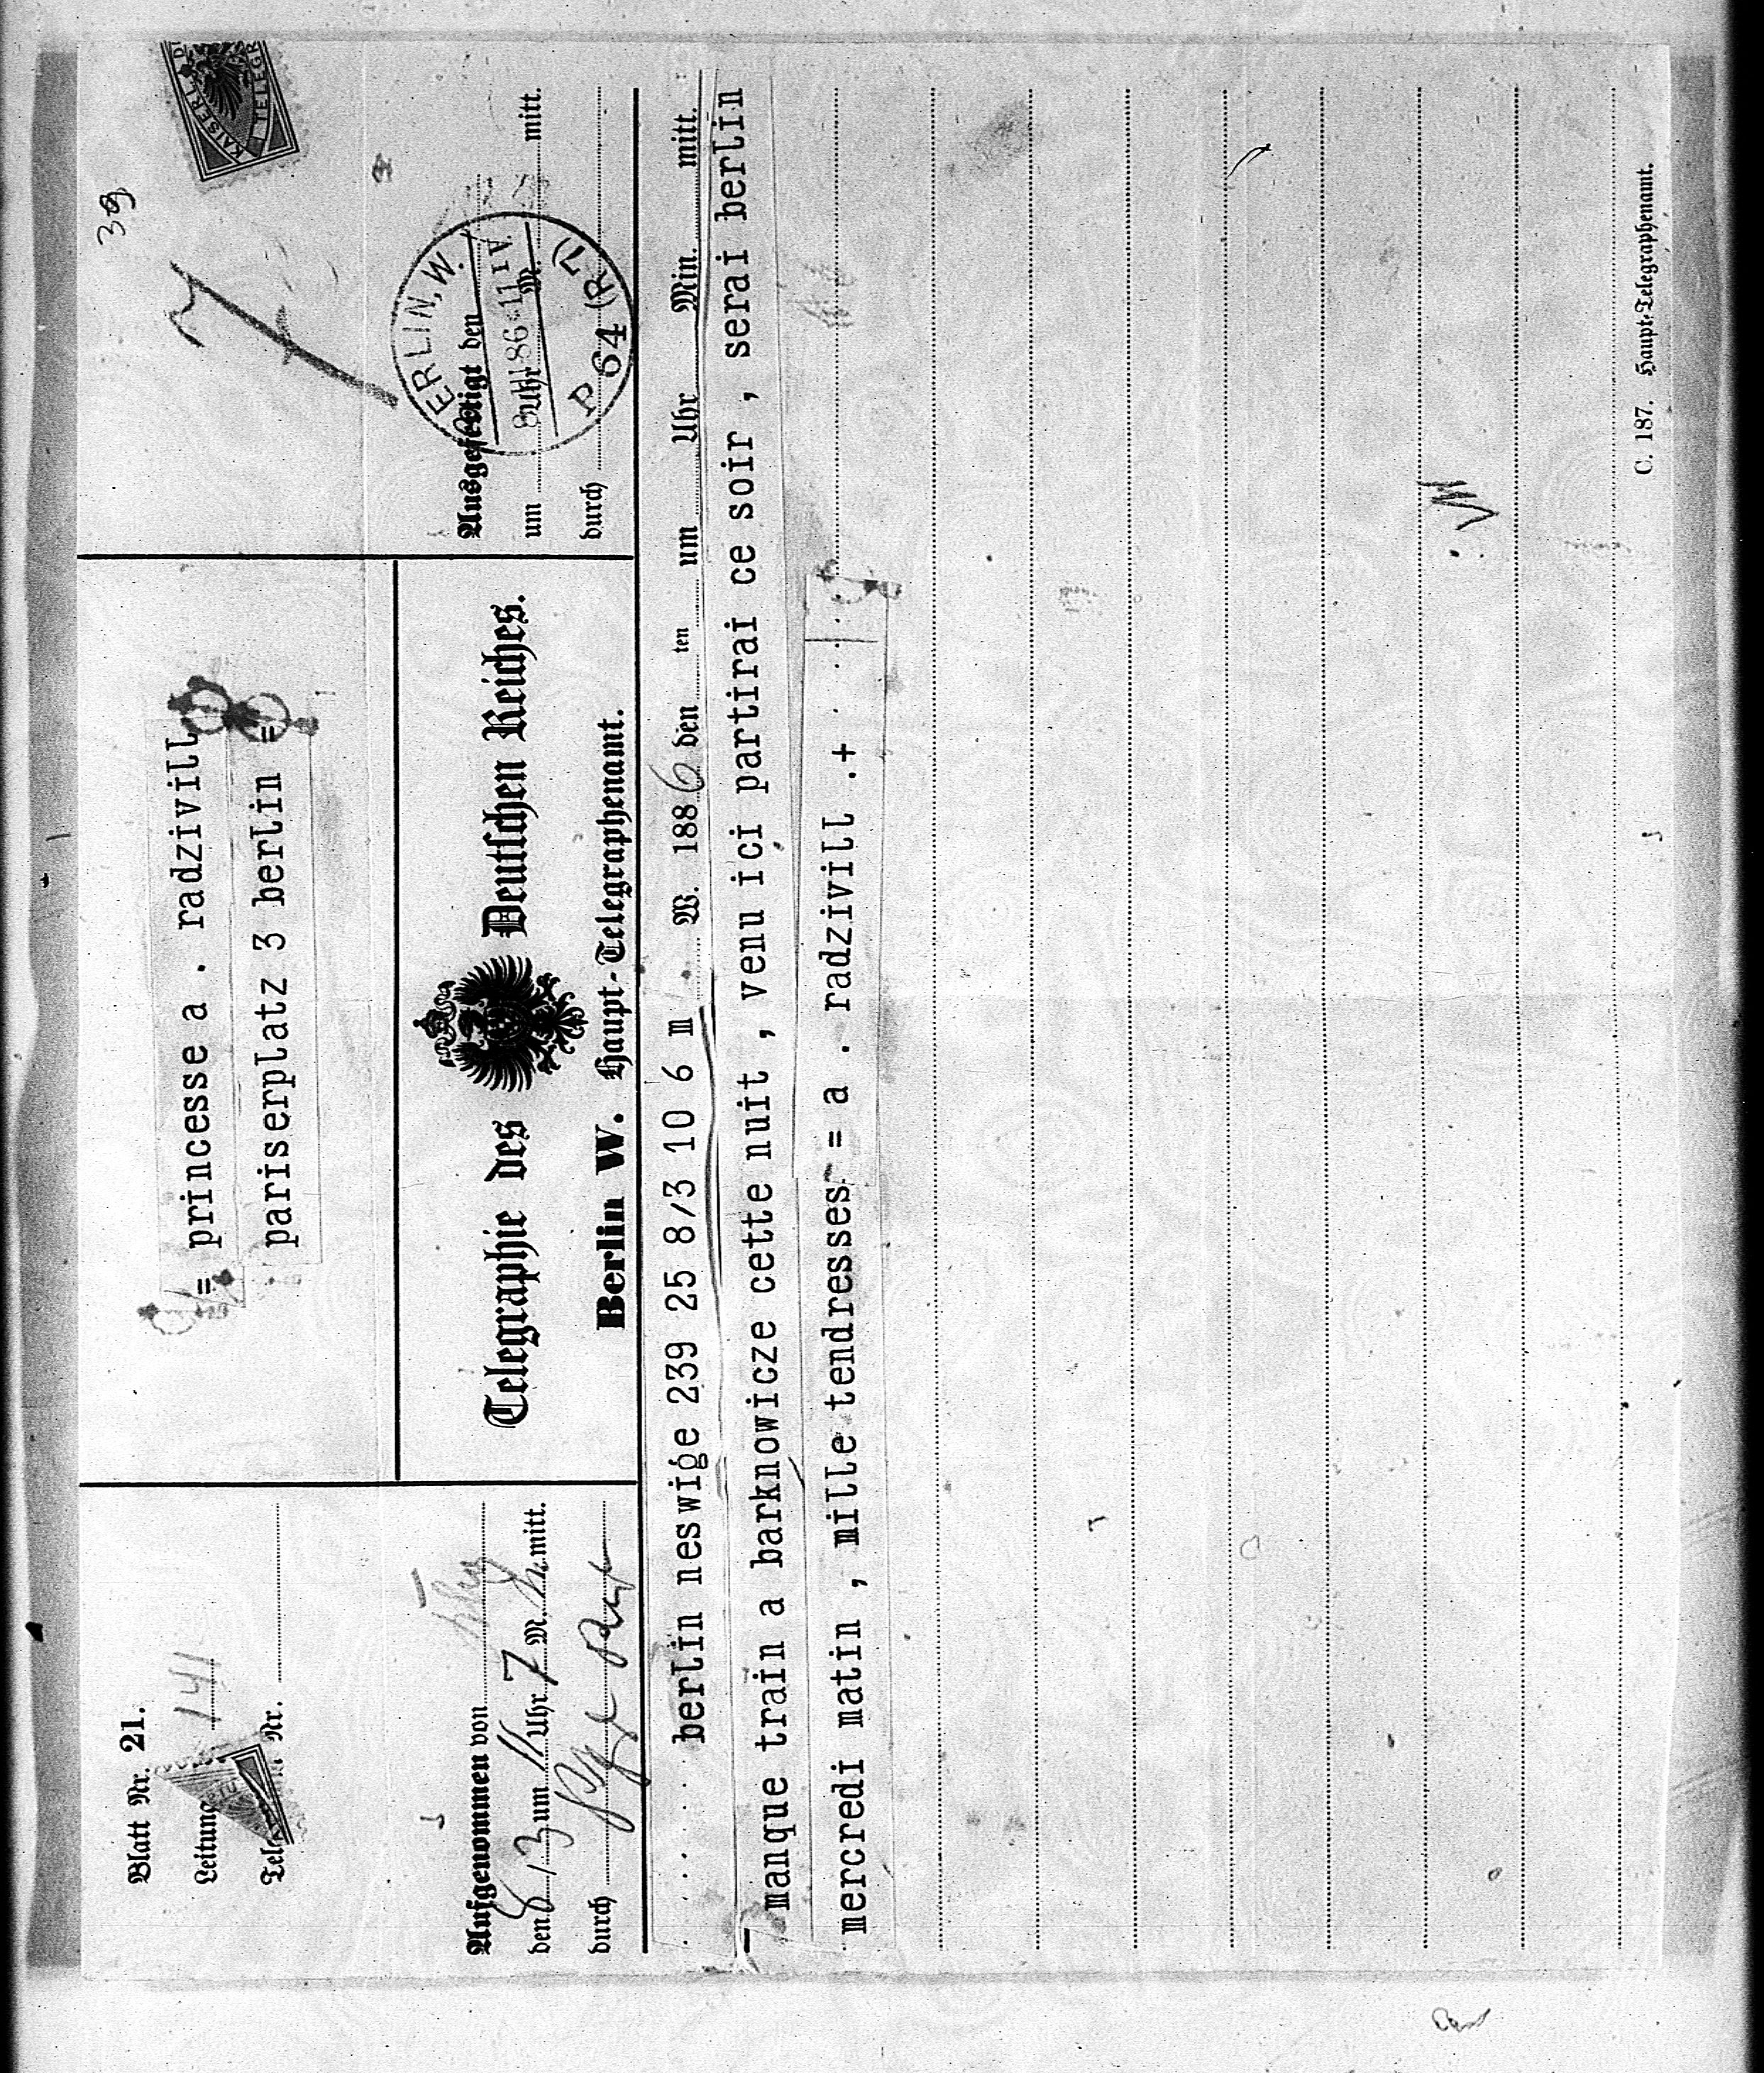 39
Blatt Nr. 21.
Leitung 141
Nr.
= princesse a . radzivill
pariserplatz 3 berlin =
KAISERL
TELEGR
Aufgenommen von
den 8/3 um 11 Uhr 7 M. mitt.
durch
Telegraphie des Deutschen Reiches.
Berlin W. Haupt-Telegraphenamt.
Ausgefertigt den
um mitt.
durch
ERLIN, W.
86
P 64 (R 7)
berlin neswige 239 25 8/3 10 6 m W. 1886 den ten um Uhr Min. mitt.
manque train a barknowicze cette nuit , venu ici partirai ce soir , serai berlin
mercredi matin , mille tendresses = a . radzivill .+
C. 187. Haupt-Telegraphenamt.